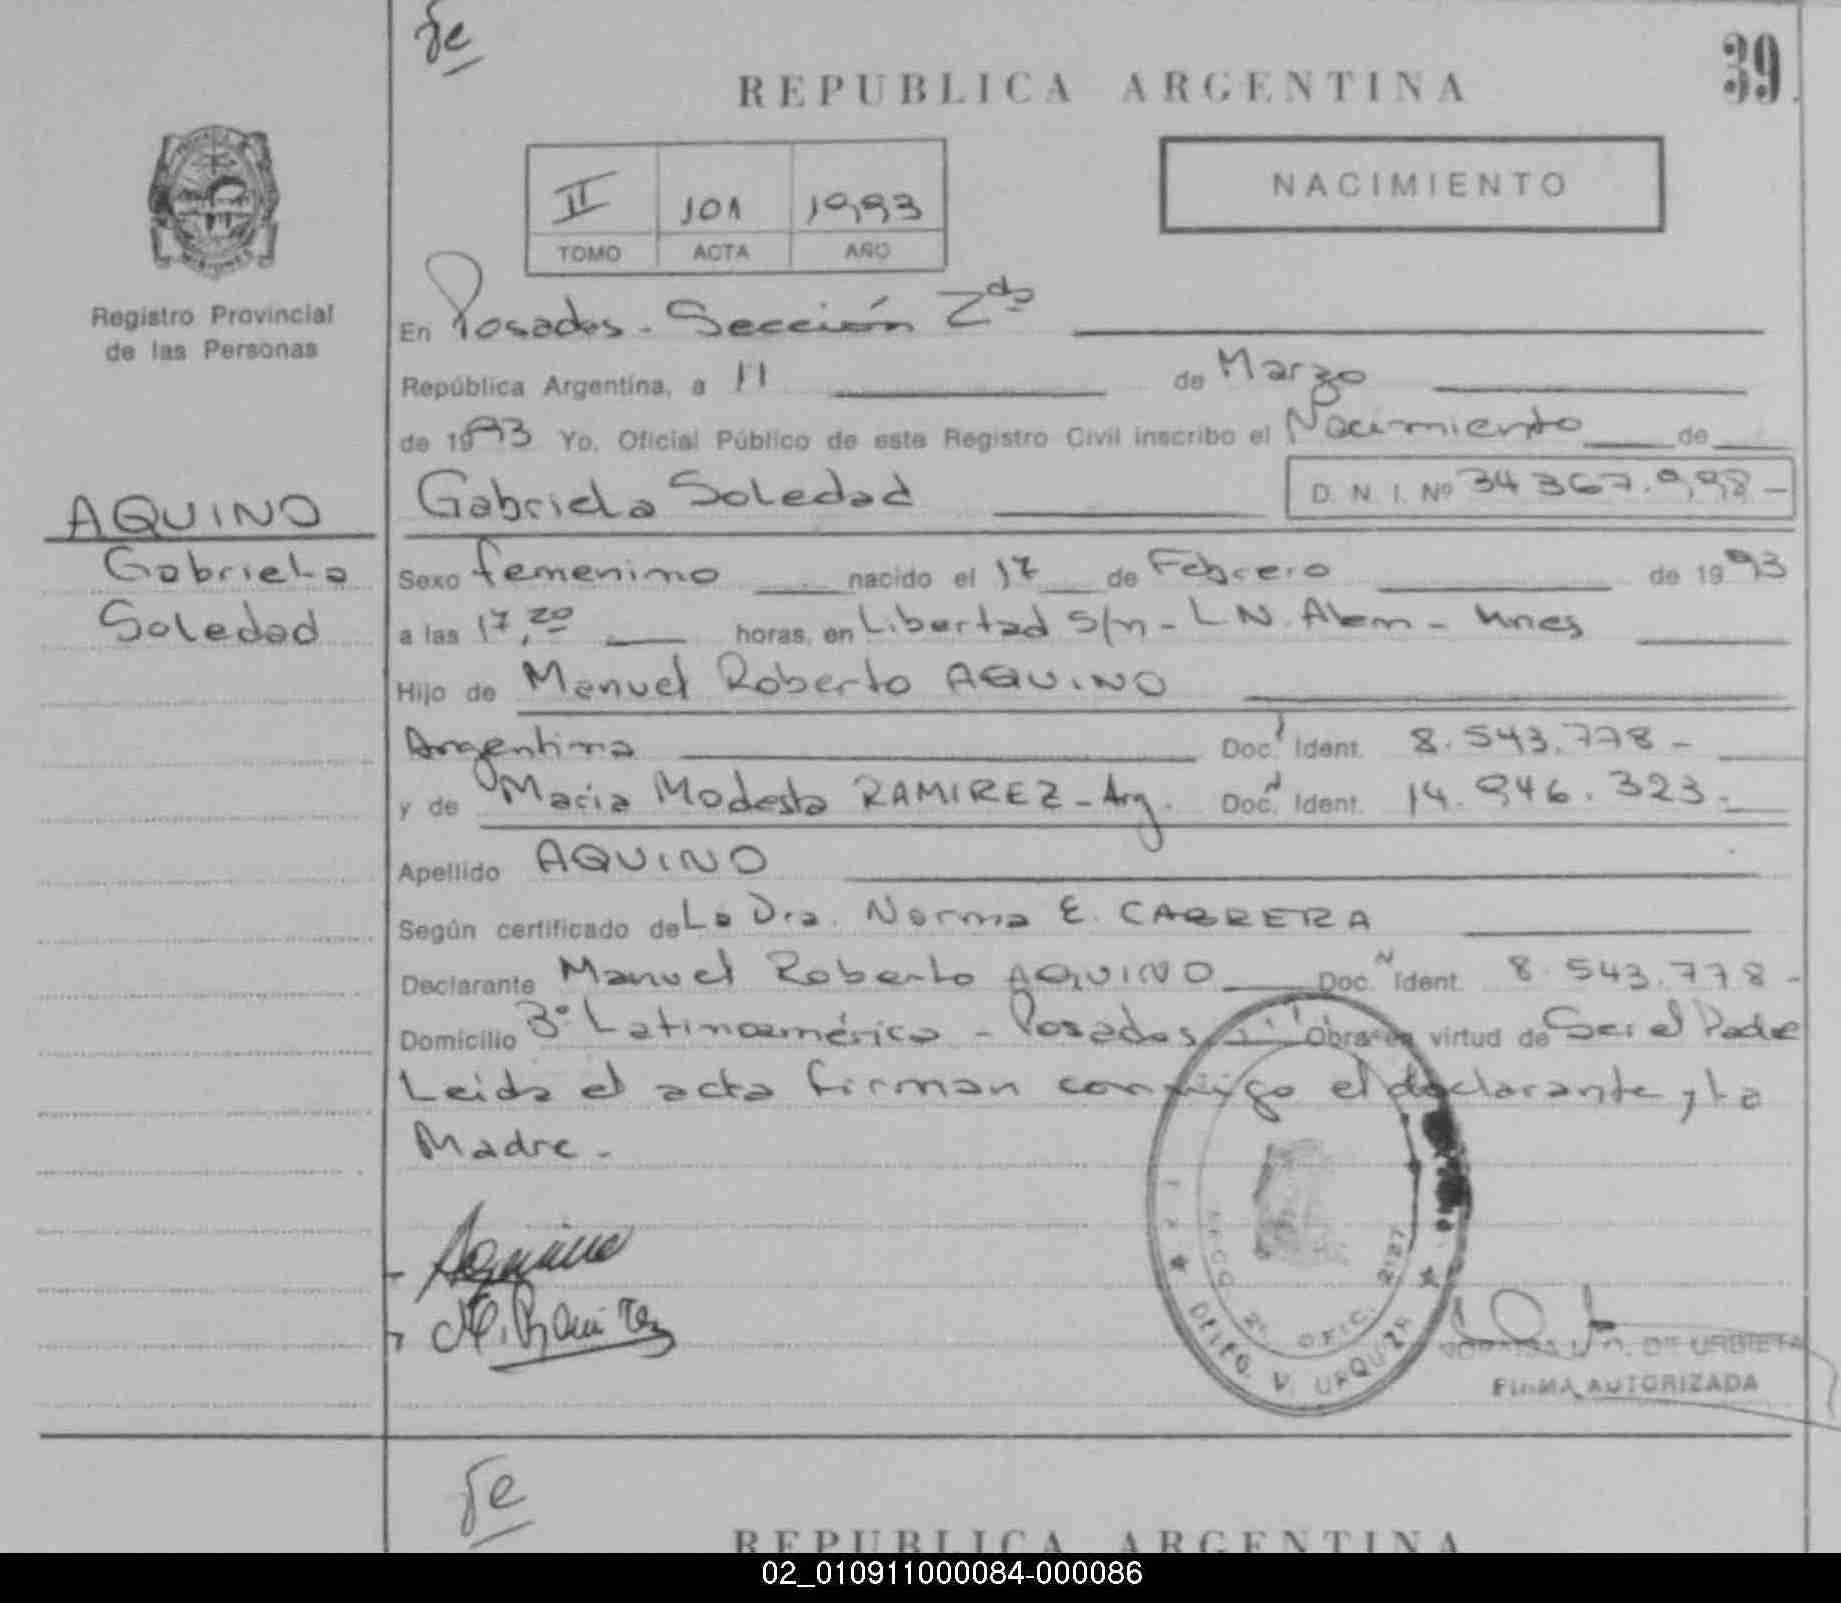 fe
REPUBLICA ARGENTINA
39
II 101 1993
TOMO ACTA AÑO
NACIMIENTO
PROVINCIA DE
MISIONES
Registro Provincial
de las Personas
En Posadas - Sección 2da
República Argentina, a 11 de Marzo
de 1993 Yo, Oficial Público de este Registro Civil inscribo el Nacimiento de
AQUINO
Gabriela Soledad D. N. I. Nº 34 367.998 -
Gabriela
Soledad
Sexo femenino nacido el 17 de Febrero de 1993
a las 17,20 horas, en Libertad S/n - L N. Alem - Mnes
Hijo de Manuel Roberto AQUINO
Argentina Doc. Ident. 8.543.778 -
y de Maria Modesta RAMIREZ - Arg. Doc. Ident. 14.946.323 -
Apellido AQUINO
Según certificado de La Dra. Norma E. CABRERA
Declarante Manuel Roberto AQUINO Doc. Ident. 8 543.778 -
Domicilio Bº Latinoamérica - Posadas Obra en virtud de Ser el Padre
Leida el acta firman conmigo el declarante y La
Madre -
Aquino
M. Ramirez
SECC. 2ª OFIC. 2107
DELEG. V. URQUIZA
DE URBIETA
FIRMA AUTORIZADA
fe
REPUBLICA ARGENTINA
02_010911000084-000086